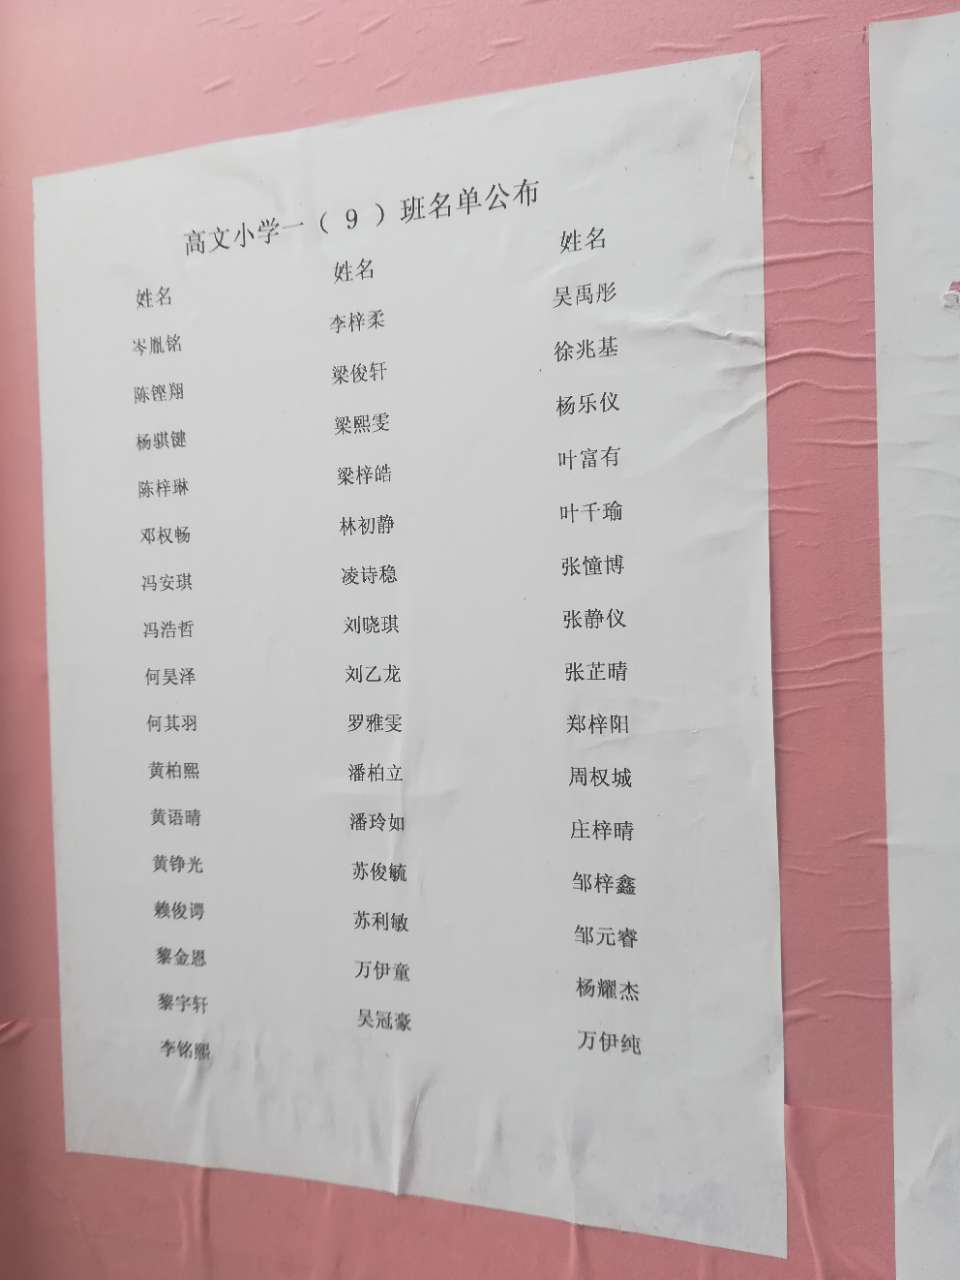 高文小学一（9）班名单公布
姓名 姓名 姓名
岑胤铭 李梓柔 吴禹彤
陈铿翔 梁俊轩 徐兆基
杨骐键 梁熙雯 杨乐仪
陈梓琳 梁梓皓 叶富有
邓权畅 林初静 叶千瑜
冯安琪 凌诗稳 张憧博
冯浩哲 刘晓琪 张静仪
何昊泽 刘乙龙 张芷晴
何其羽 罗雅雯 郑梓阳
黄柏熙 潘柏立 周权城
黄语晴 潘玲如 庄梓晴
黄铮光 苏俊毓 邹梓鑫
赖俊谔 苏利敏 邹元睿
黎金恩 万伊童 杨耀杰
黎宇轩 吴冠豪 万伊纯
李铭熙